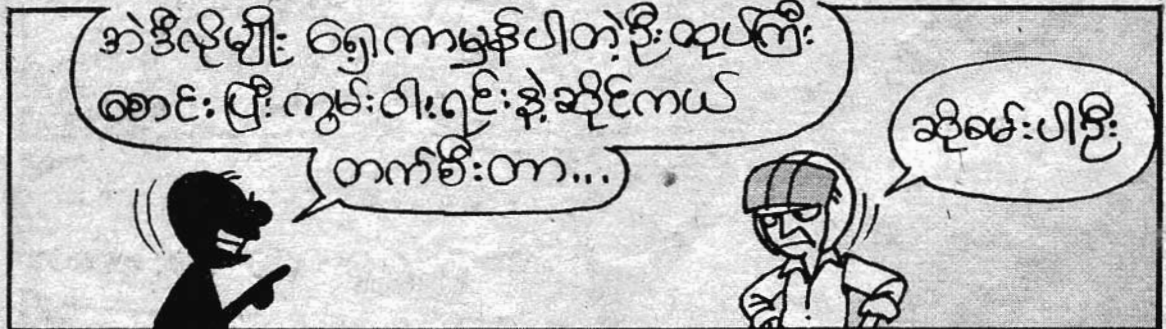 အဲဒီလိုမျိုး ရှေ့ကာမှန်ပါတဲ့ဦးထုပ်ကြီး
ဆောင်းပြီး ကွမ်းဝါးရင်းနဲ့ဆိုင်ကယ်
တက်စီးတာ...
ဆိုစမ်းပါဦး